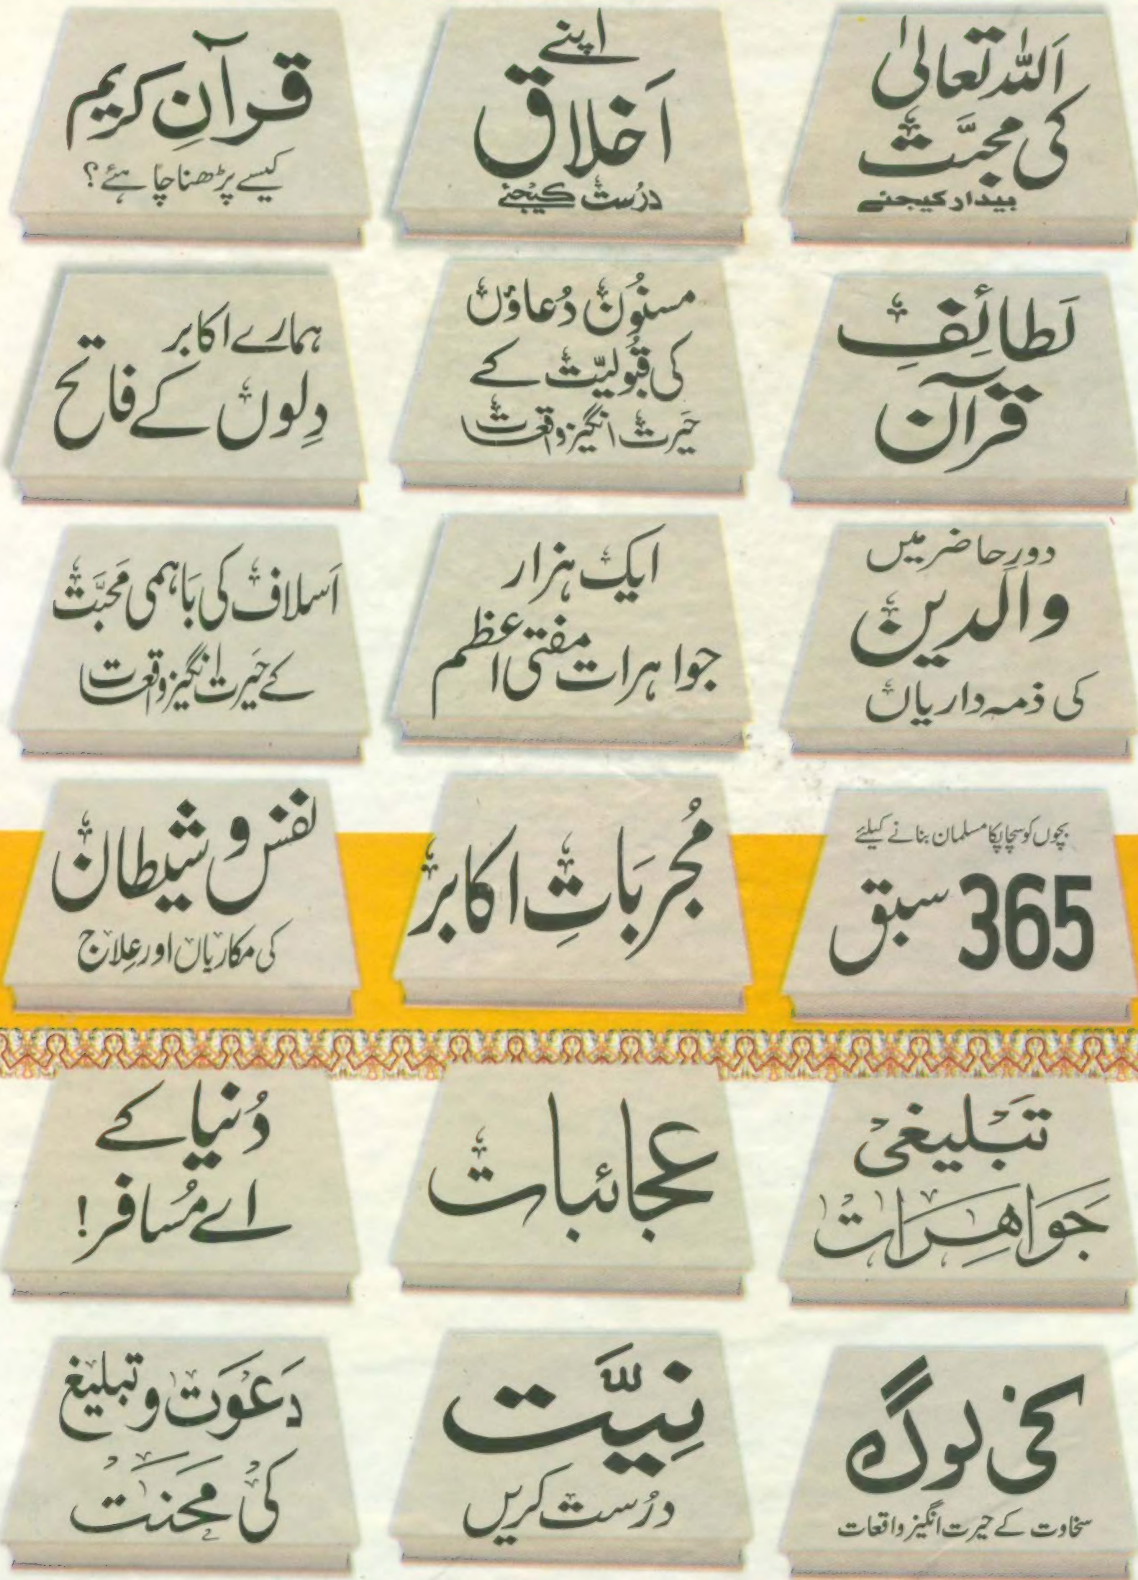 اللہ تعالیٰ
کی محبّت
بیدار کیجئے
اپنے
اَخلاق
درُست کیجئے
قرآنِ کریم
کیسے پڑھنا چاہئے؟
لَطائِفِ
قرآن
مسنُون دُعاؤں
کی قبُولیّت کے
حَیرت انگیز واقعات
ہمارے اکابر
دِلوں کے فاتح
دورِ حاضر میں
والدین
کی ذمہ داریاں
ایک ہزار
جواہرات مفتی اعظم
اَسلاف کی بَاہمی مَحبَّت
کے حَیرت انگیز واقعات
بچوں کو سچا پکا مسلمان بنانے کیلئے
365 سبق
مُجربَاتِ اکابر
نفس و شیطان
کی مکاریاں اور عِلاج
تَبْلیغیْ
جَواهِرَات
عجائبات
دُنیا کے
اے مُسافر!
سخی لوگ
سخاوت کے حیرت انگیز واقعات
نِیَّت
درُست کریں
دَعوَت و تبلیغ
کی مَحنَت